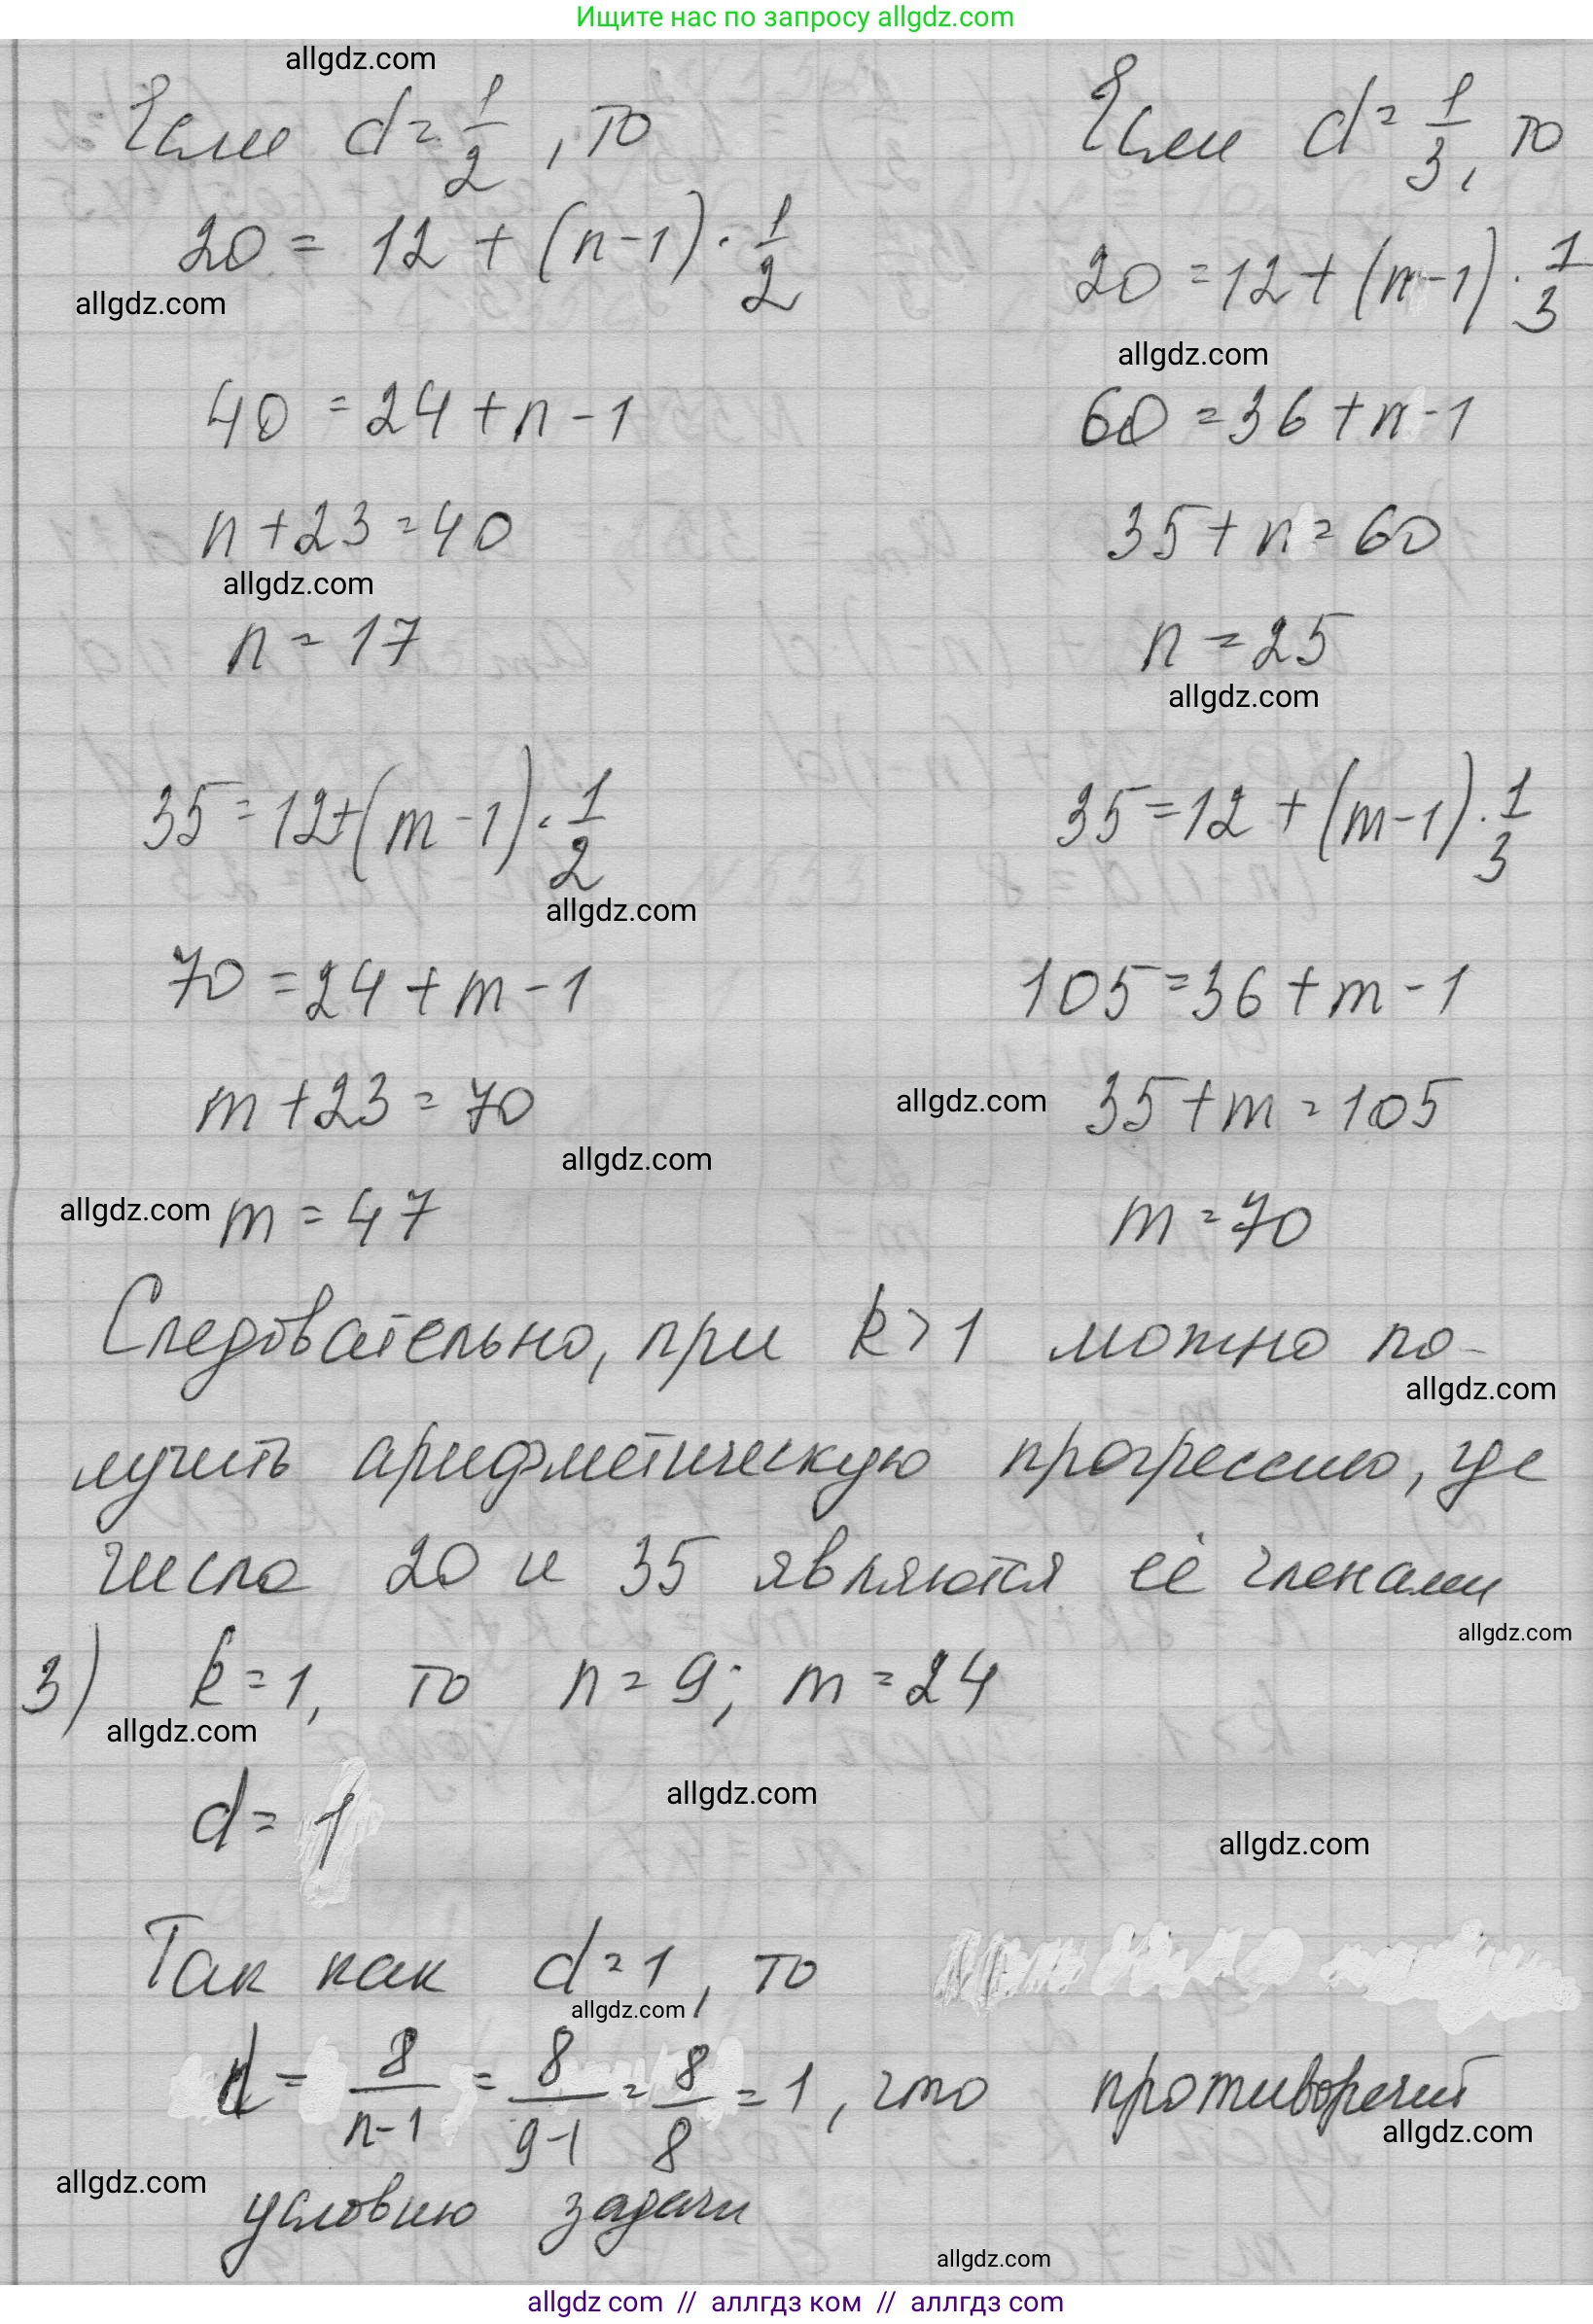 Ищите нас по запросу allgdz.com
allgdz.com
Если d = 1/2, то
20 = 12 + (n-1) · 1/2
allgdz.com
40 = 24 + n - 1
n + 23 = 40
allgdz.com
n = 17
35 = 12 + (m-1) · 1/2
allgdz.com
70 = 24 + m - 1
m + 23 = 70
allgdz.com
allgdz.com
m = 47
Если d = 1/3, то
20 = 12 + (n-1) · 1/3
allgdz.com
60 = 36 + n - 1
35 + n = 60
n = 25
allgdz.com
35 = 12 + (m-1) · 1/3
105 = 36 + m - 1
allgdz.com
35 + m = 105
m = 70
Следовательно, при k > 1 можно по-
allgdz.com
лучить арифметическую прогрессию, где
числа 20 и 35 являются её членами
allgdz.com
3) k = 1, то n = 9; m = 24
allgdz.com
d = 1
allgdz.com
allgdz.com
Так как d = 1, то
allgdz.com
d = 8/(n-1) = 8/(9-1) = 8/8 = 1, что противоречит
allgdz.com
allgdz.com
условию задачи
allgdz.com
allgdz com // аллгдз ком // аллгдз com